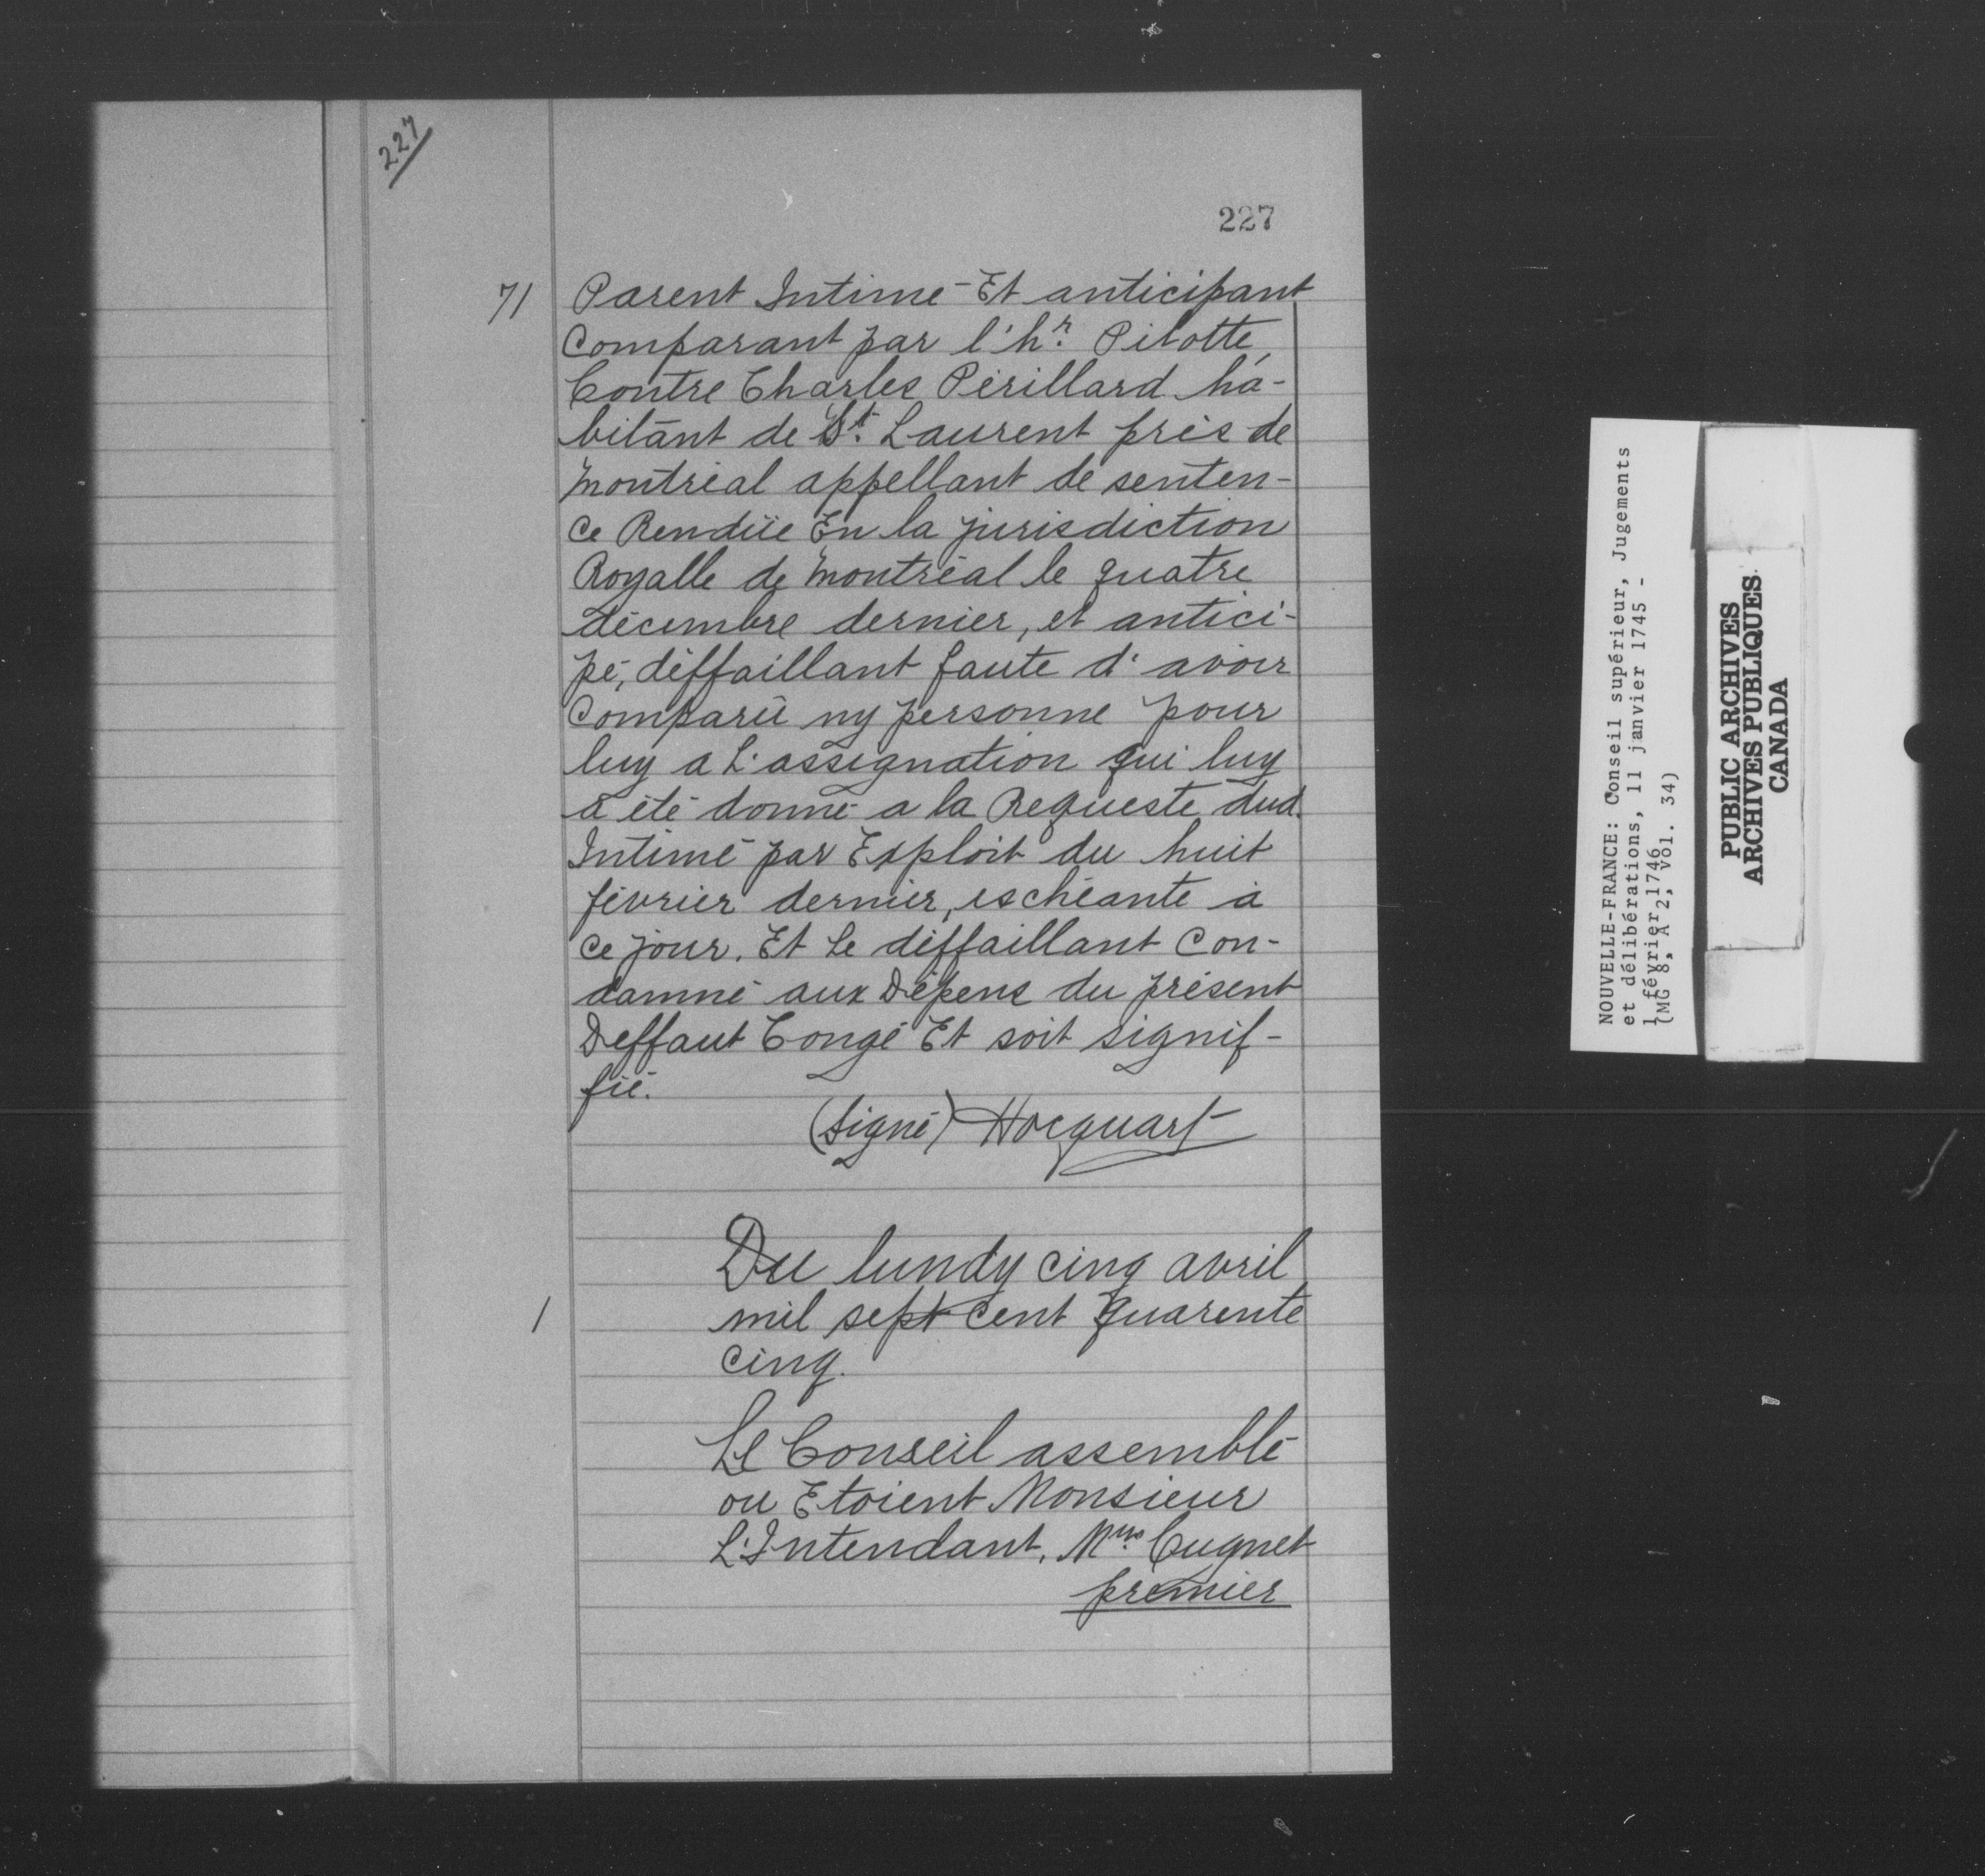 227
227
71 Parent Intimé Et anticipant
Comparant par l'hr. Pilotte,
Contre Charles Périllard ha-
bitant de St. Laurent près de
montréal appellant de senten-
ce Rendüe En la jurisdiction
Royalle de montréal le quatre
décembre dernier, et antici-
pé, déffaillant faute d'avoir
Comparû ny personne pour
luy a L'assignation qui luy
a été donné a la Requeste dud.
Intimé par Exploit du huit
février dernier, eschéante à
ce jour. Et Le déffaillant Con-
damné aux Dépens du présent
Deffaut Congé Et soit signif-
fié.
(Signé) Hocquart
Du lundy cinq avril
1 mil sept cent quarente
cinq.
Le Conseil assemblé
ou Etoient Monsieur
L'Intendant, Mrs. Cugnet
premier
NOUVELLE-FRANCE: Conseil supérieur, Jugements
et délibérations, 11 janvier 1745 -
1 février 1746
(MG 8, A 2, vol. 34)
PUBLIC ARCHIVES
ARCHIVES PUBLIQUES
CANADA